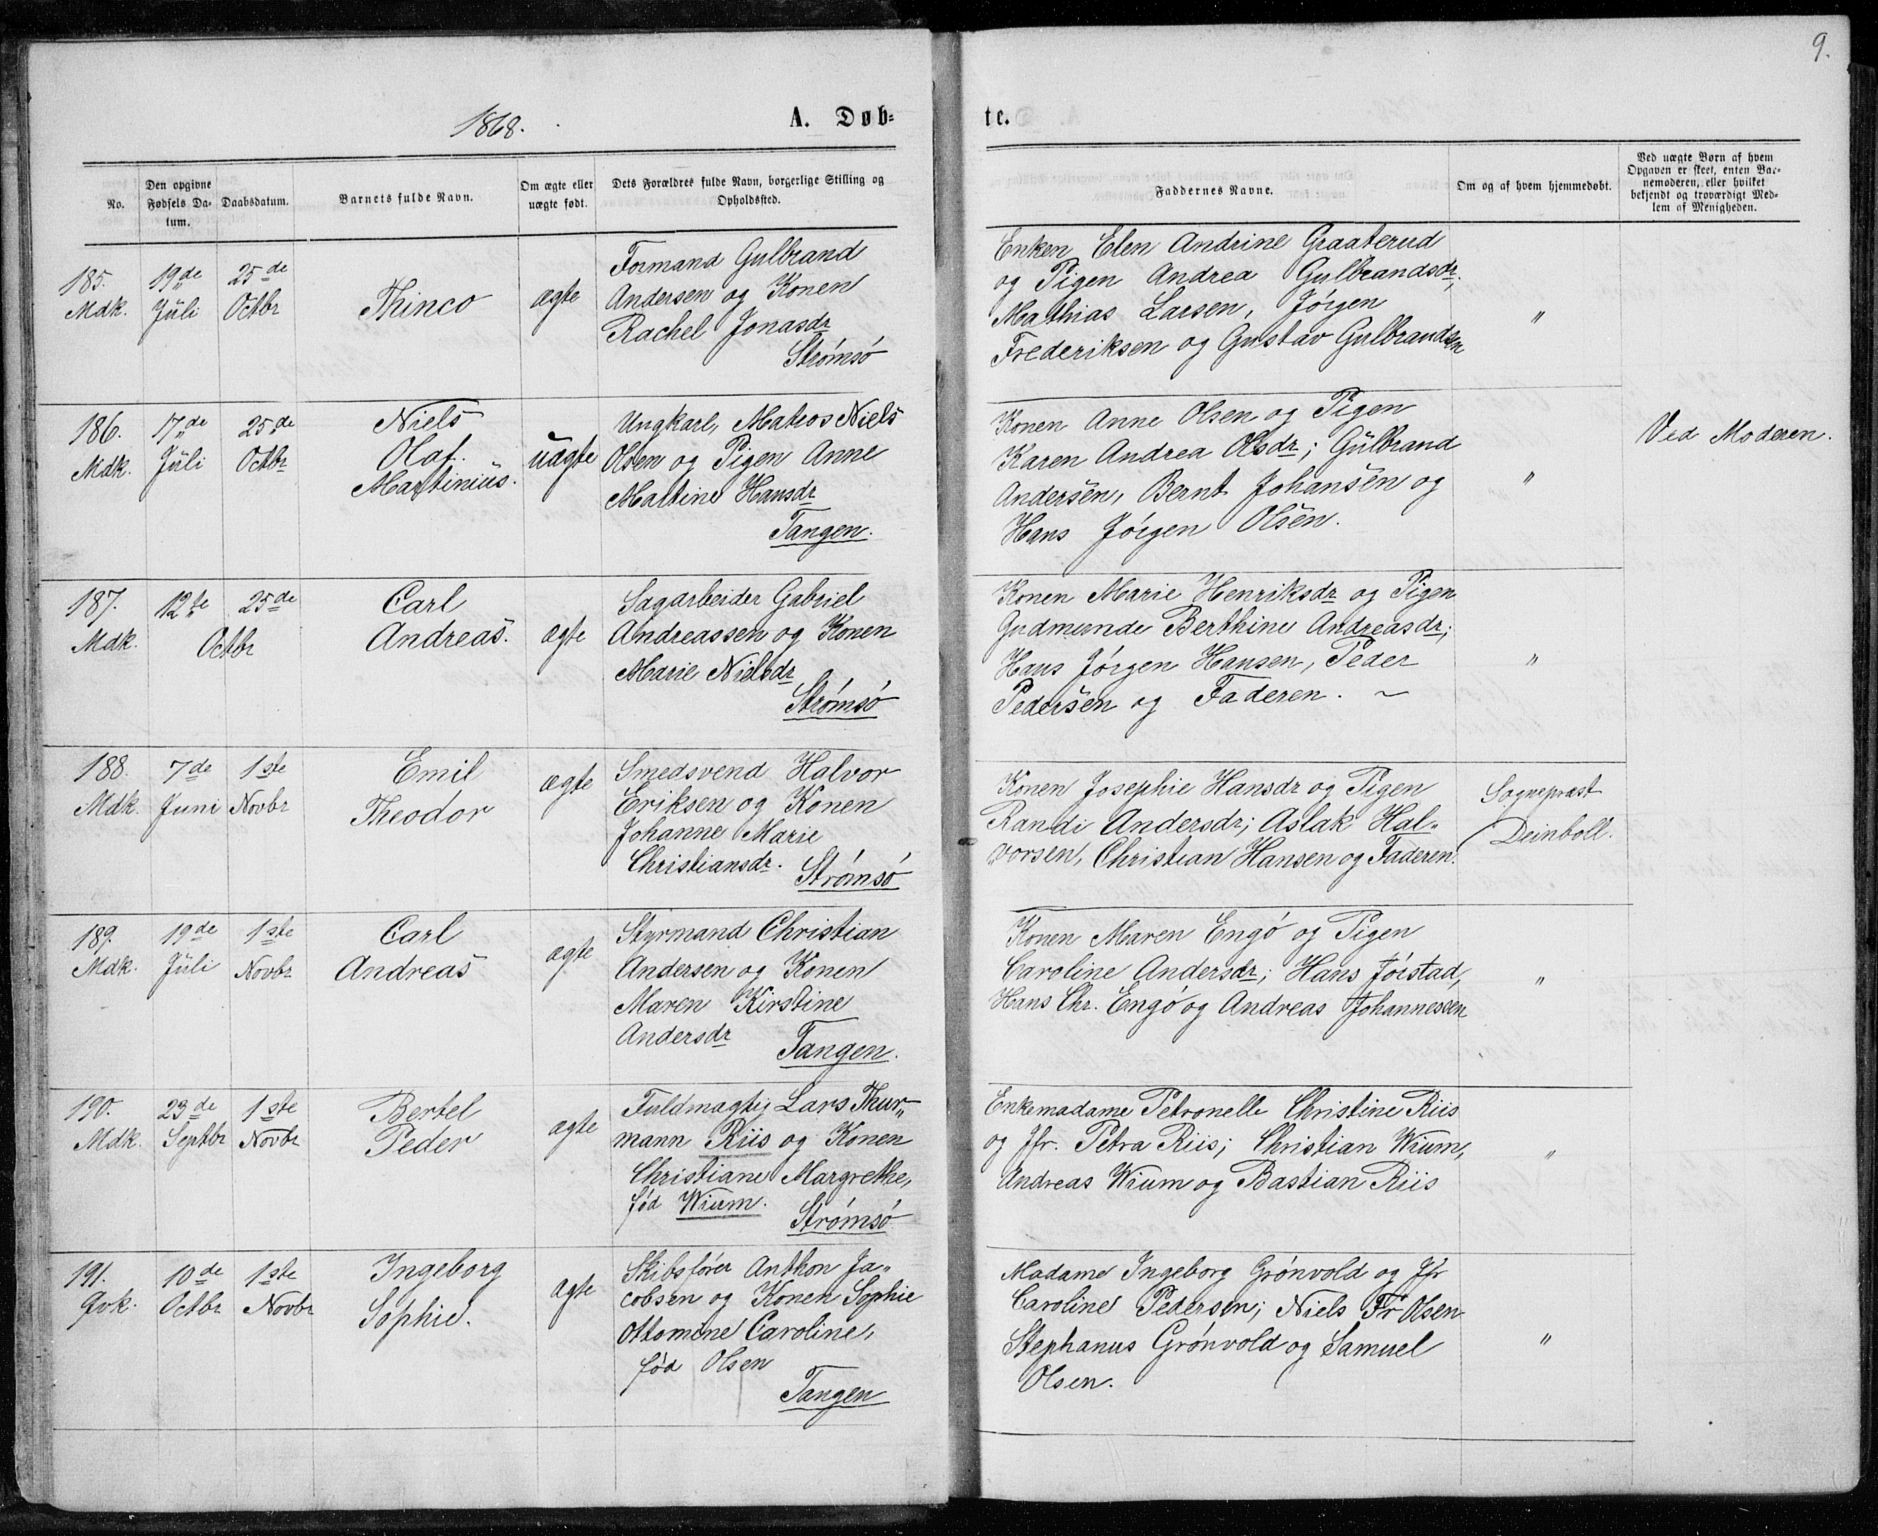 9.
1868.
A. Døb-
te.
No.
Den opgivne Fødsels Da-
tum.
Daabsdatum.
Barnets fulde Navn.
Om ægte eller
uægte født.
Dets Forældres fulde Navn, borgerlige Stilling og
Opholdssted.
Faddernes Navne.
Om og af hvem hjemmedøbt.
Ved uægte Børn af hvem
Opgaven er skeet, enten Bar-
nemoderen, eller hvilket
bekjendt og troværdigt Med-
lem af Menigheden.
185. Mdk.
19de Juli
25de Octbr
Thinco
ægte
Formand Gulbrand
Andersen og Konen
Rachel Jonasdr
Strømsø
Enken Elen Andrine Graaterud
og Pigen Andrea Gulbrandsdr;
Mathias Larsen, Jørgen
Frederiksen og Gustav Gulbrandsen
"
186. Mdk.
17de Juli
25de Octbr
Niels
Olaf
Martinius.
uægte
Ungkarl, Matros Niels
Olsen og Pigen Anne
Maltine Hansdr
Tangen.
Konen Anne Olsen og Pigen
Karen Andrea Olsdr; Gulbrand
Andersen, Bernt Johansen og
Hans Jørgen Olsen.
"
Ved Moderen.
187. Mdk.
12te 25de
Octbr
Carl
Andreas.
ægte
Sagarbeider Gabriel
Andreassen og Konen
Marie Nielsdr
Strømsø
Konen Marie Henriksdr og Pigen
Gudmunde Berthine Andreasdr;
Hans Jørgen Hansen, Peder
Pedersen og Faderen. ~
"
188. Mdk.
7de Juni
1ste Novbr
Emil
Theodor
ægte
Smedsvend Halvor
Eriksen og Konen
Johanne Marie
Christiansdr.
Strømsø
Konen Josephie Hansdr og Pigen
Randi Andersdr; Aslak Hal-
vorsen, Christian Hansen og Faderen.
Sognepræst
Deinboll.
189. Mdk.
19de Juli
1ste Novbr
Carl
Andreas
ægte
Styrmand Christian
Andersen og Konen
Maren Kirstine
Andersdr
Tangen.
Konen Maren Engø og Pigen
Caroline Andersdr; Hans Jøistad,
Hans Chr. Engø og Andreas Johannessen
"
190. Mdk.
23de Septbr
1ste Novbr
Bertel
Peder
ægte
Fuldmægtig Lars Thur-
mann Riis og Konen
Christiane Margrethe,
fød Wium.
Strømsø
Enkemadame Petronelle Christine Riis
og Jfr. Petra Riis; Christian Wium,
Andreas Wium og Bastian Riis
"
191. Qvk.
10de Octbr
1ste Novbr
Ingeborg
Sophie.
ægte
Skibsfører Anthon Ja-
cobsen og Konen Sophie
Ottomine Caroline,
fød Olsen
Tangen
Madame Ingeborg Grønvold og Jfr
Caroline Pedersen; Niels Fr Olsen
Stephanus Grønvold og Samuel
Olsen.
"